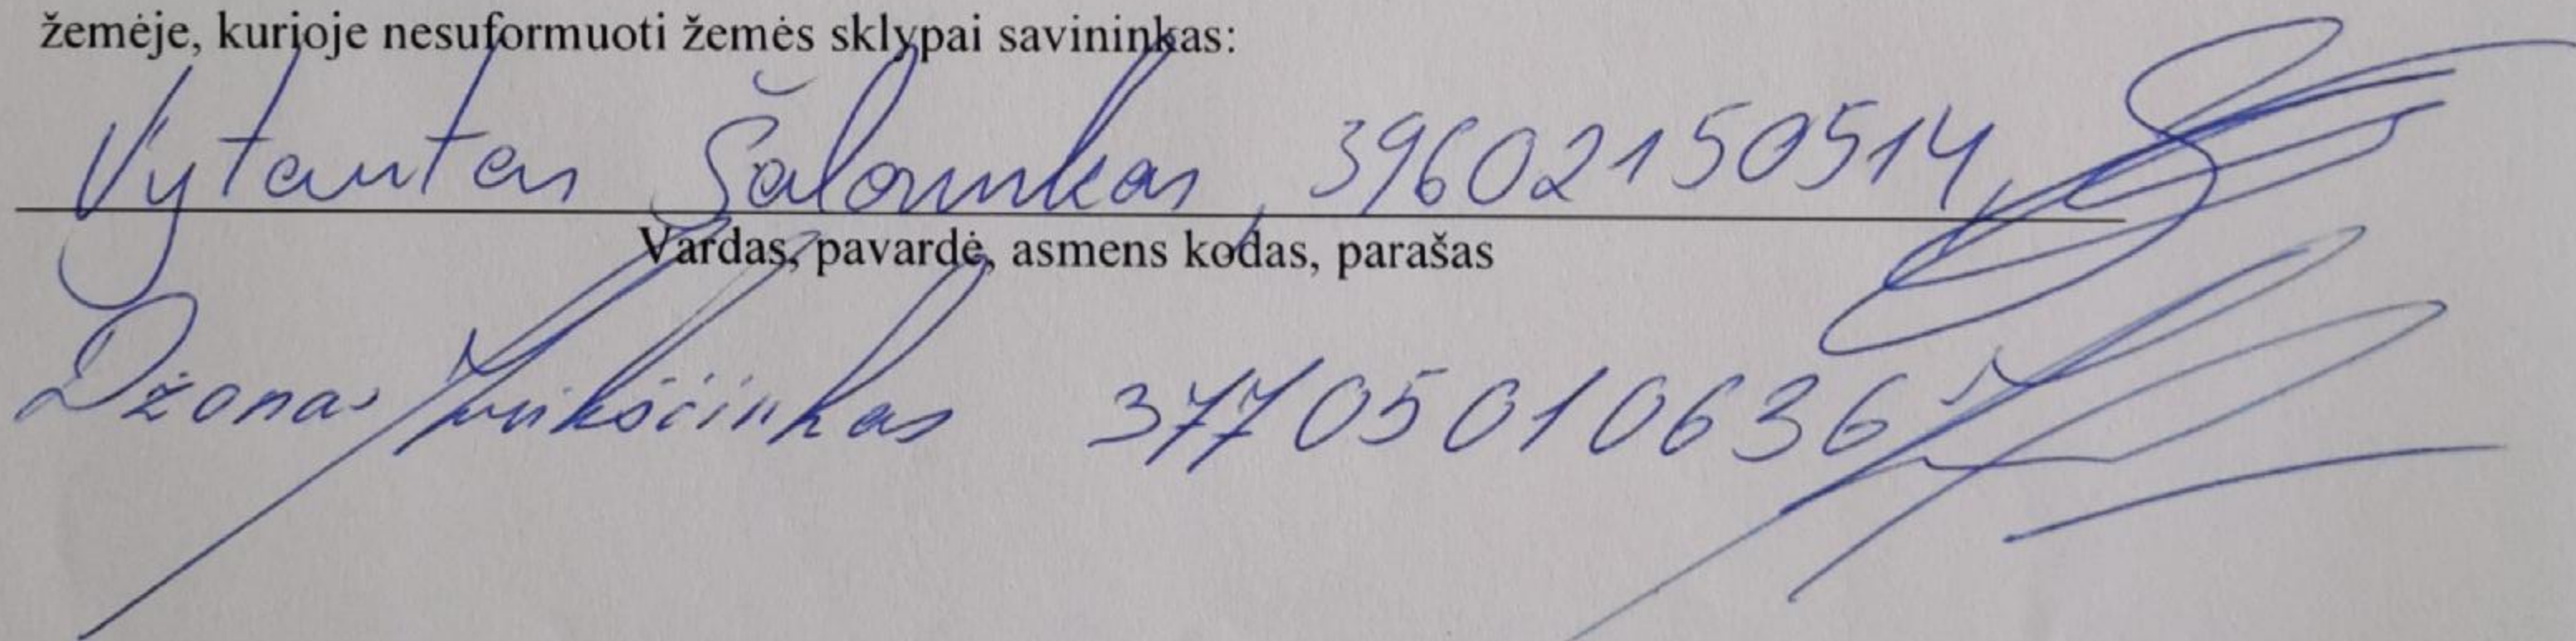 žemėje, kurioje nesuformuoti žemės sklypai savininkas:
Vytautas Šalounkas, 39602150514,
Vardas, pavardė, asmens kodas, parašas
Džonas 37705010636